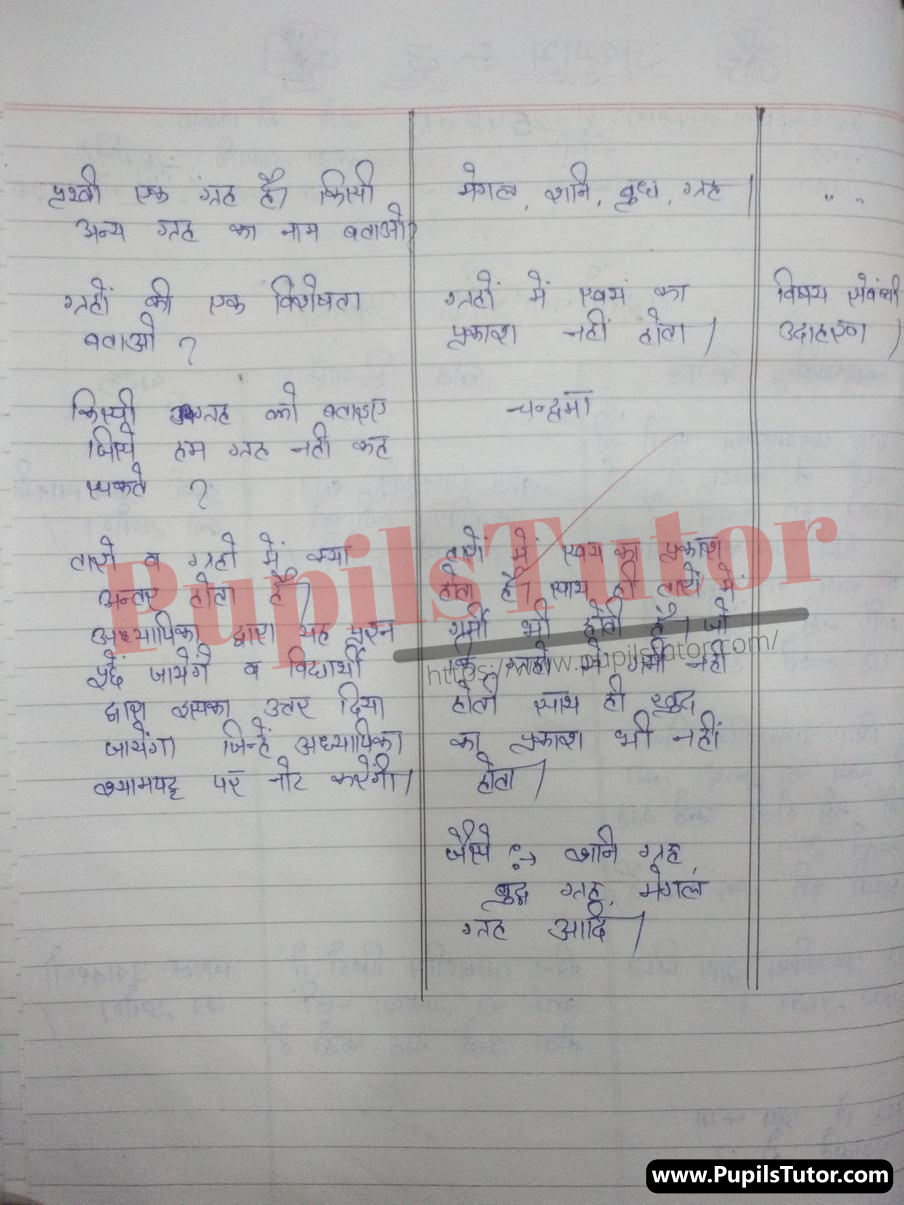 पृथ्वी एक ग्रह है। किसी
अन्य ग्रह का नाम बताओ?
मंगल, शनि, बुध, ग्रह।
" "
ग्रहों की एक विशेषता
बताओ ?
ग्रहों में स्वयं का
प्रकाश नहीं होता।
विषय संबंधी
उदाहरण।
किसी उपग्रह को बताइए
जिसे हम ग्रह नही कह
सकते ?
चन्द्रमा
तारो व ग्रहो में क्या
अन्तर होता है।
अध्यापिका द्वारा यह प्रश्न
पूछे जायेगे व विद्यार्थी
द्वारा इसका उत्तर दिया
जायेंगा जिन्हें अध्यापिका
श्यामपट्ट पर नोट करेगी।
तारों में स्वयं का प्रकाश
होता है। साथ ही तारों में
गर्मी भी होती है। जो
कि ग्रहों में गर्मी नहीं
होती साथ ही खुद
का प्रकाश भी नहीं
होता।
जैसे :→ शनि ग्रह,
बुद्ध ग्रह, मंगल
ग्रह आदि।
PupilsTutor
https://www.pupilstutor.com/
www.PupilsTutor.com